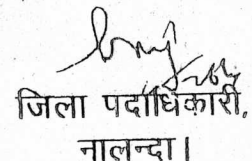 जिला पदाधिकारी,
नालन्दा।